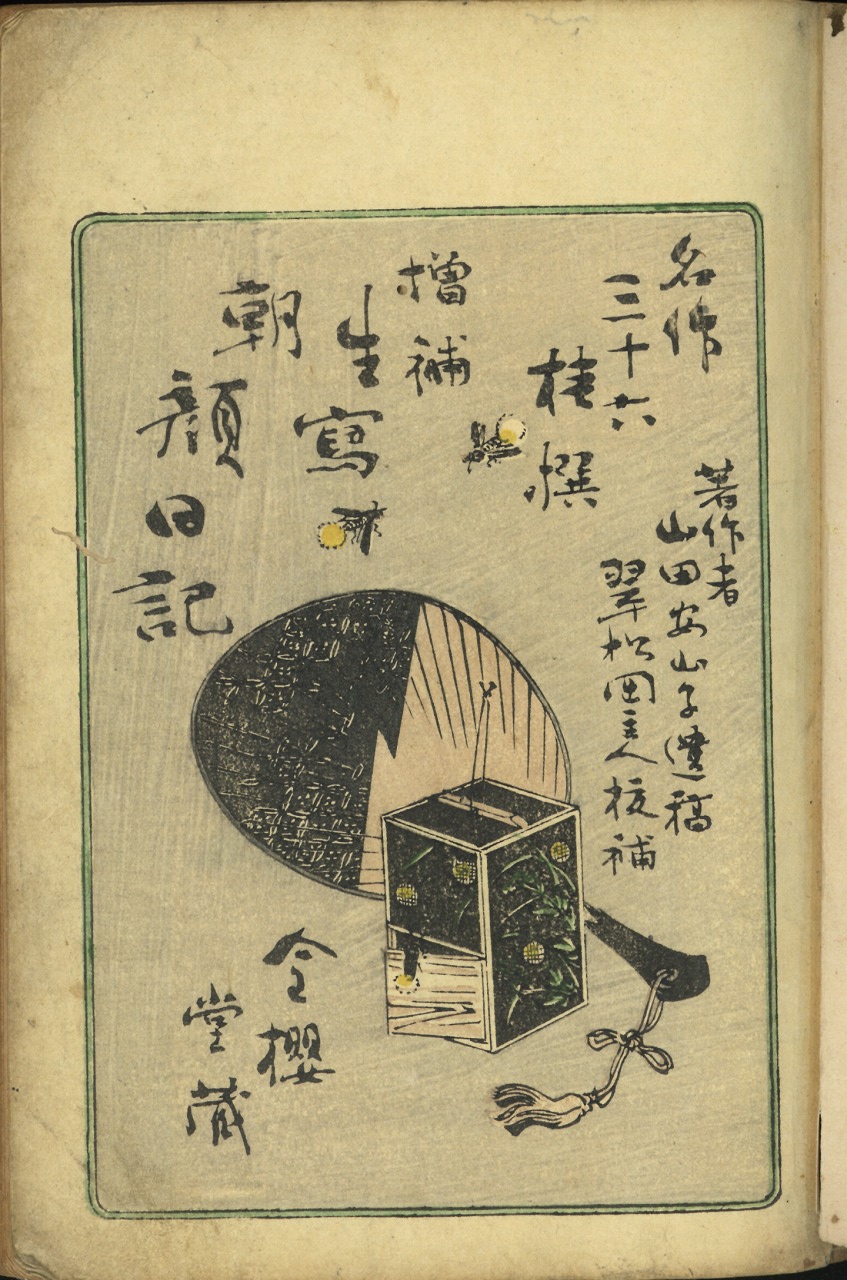 名作
三十六
佳撰
著作者
山田案山子遺稿
翠松園主人校補
増補
生寫
朝顔日記
金櫻
堂藏